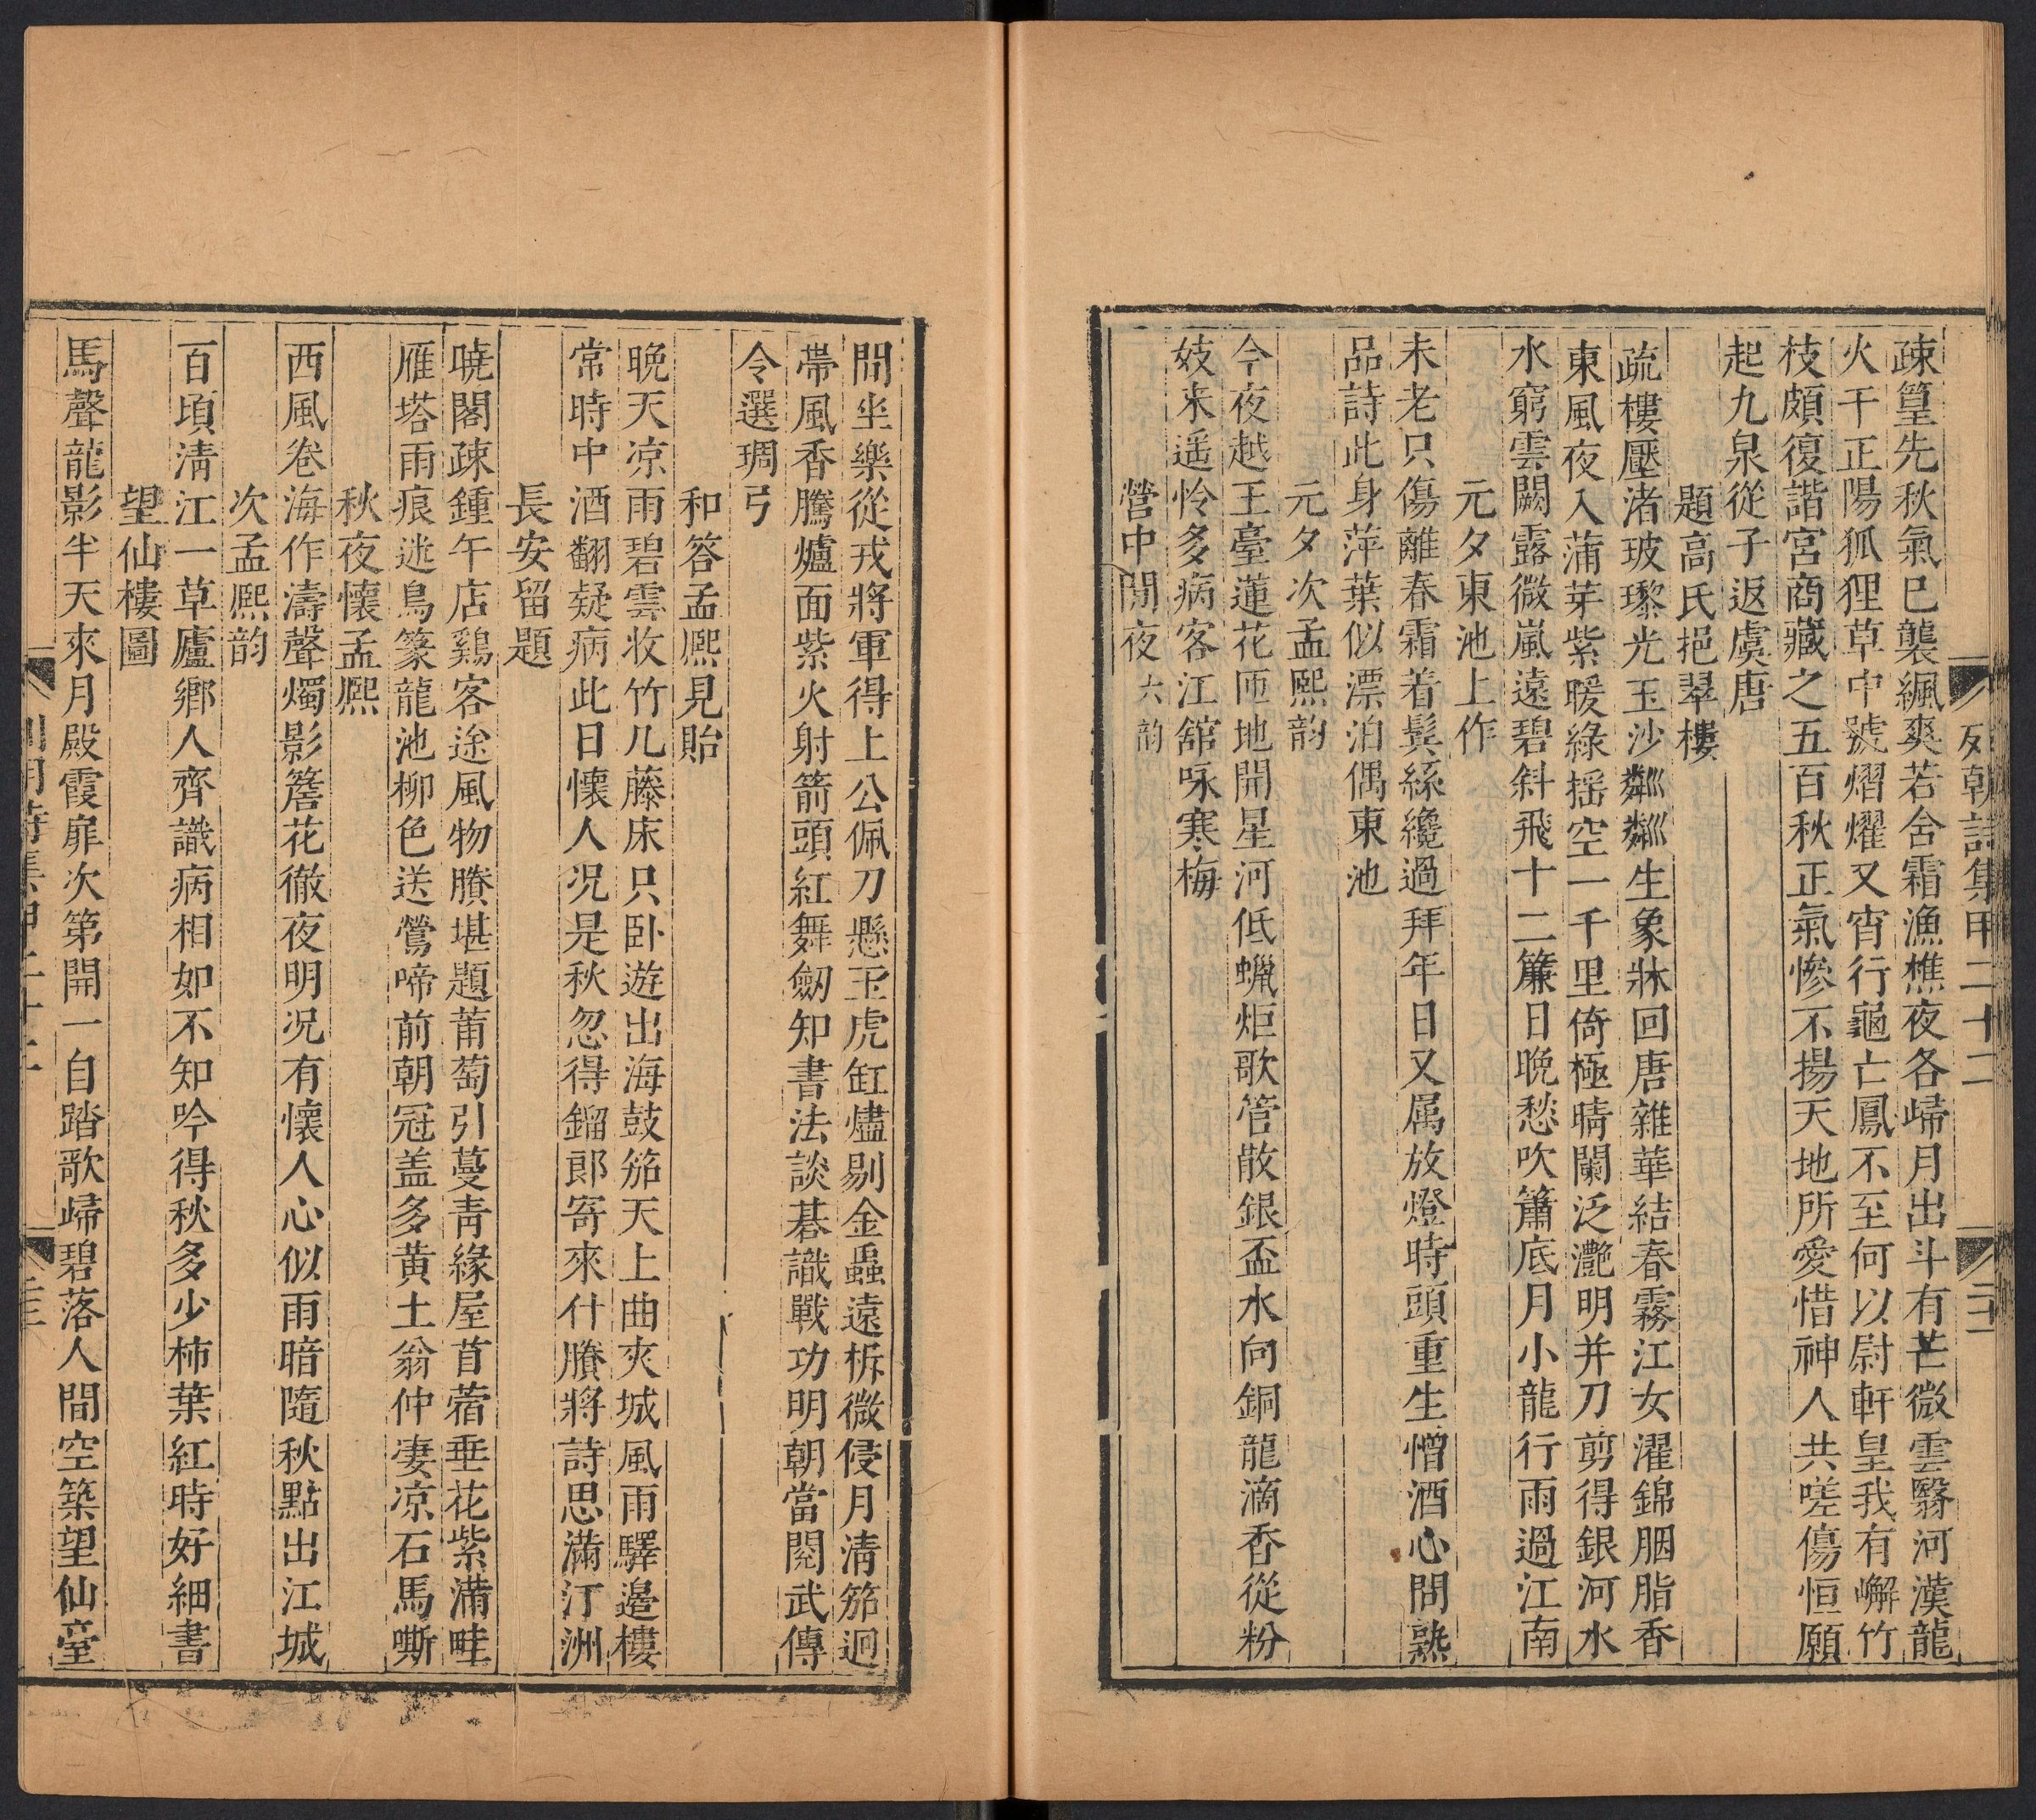 疎篁先秋氣巳襲颯爽若舍霜漁樵夜各歸月出斗有芒微雲翳河漢龍
火干正陽狐狸草中號熠燿又宵行龜亡鳳不至何以尉軒皇我有嶰竹
枝頗復諧宮商藏之五百秋正氣慘不揚天地所愛惜神人共嗟傷恒願
起九泉從子返虞唐
題高氏挹翠樓
疏樓壓渚玻瓈光玉沙粼粼生象牀回唐雜華結春霧江女濯錦胭脂香
東風夜入蒲芽紫暖綠揺空一千里倚極晴闌泛灔明并刀剪得銀河水
水窮雲闕露微嵐遠碧斜飛十二簾日晚愁吹簫底月小龍行雨過江南
元夕東池上作
未老只傷離春霜着鬂絲纔過拜年日又属放燈時頭重生憎酒心閒熟
品詩此身萍葉似漂泊偶東池
元夕次孟熙韵
今夜越王臺蓮花匝地開星河低蠟炬歌管散銀盃水向銅龍滴香從粉
妓来遥怜多病客江舘咏寒梅
營中閒夜六韵
列朝詩集甲二十二
二十一
閒坐樂從戎將軍得上公佩刀懸玉虎缸燼剔金蟲遠柝微侵月清笳迥
帯風香騰爐面紫火射箭頭紅舞劒知書法談碁識戰功明朝當閱武傳
令選琱弓
和答孟熙見貽
晩天凉雨碧雲收竹几藤床只卧遊出海鼓笳天上曲夾城風雨驛邉樓
常時中酒翻疑病此日懷人况是秋忽得鎦郎寄來什賸將詩思滿汀洲
長安留題
曉閣疎鍾午店鷄客途風物賸堪題葡萄引蔓靑緣屋苜蓿垂花紫滿畦
雁塔雨痕迷鳥篆龍池柳色送鶯啼前朝冠盖多黄土翁仲凄凉石馬嘶
秋夜懷孟熙
西風卷海作濤聲燭影簷花徹夜明况有懷人心似雨暗隨秋點出江城
次孟熙韵
百頃淸江一草廬鄉人齊識病相如不知吟得秋多少柿葉紅時好細書
望仙樓圖
馬聲龍影半天來月殿霞扉次第開一自踏歌歸碧落人間空築望仙臺